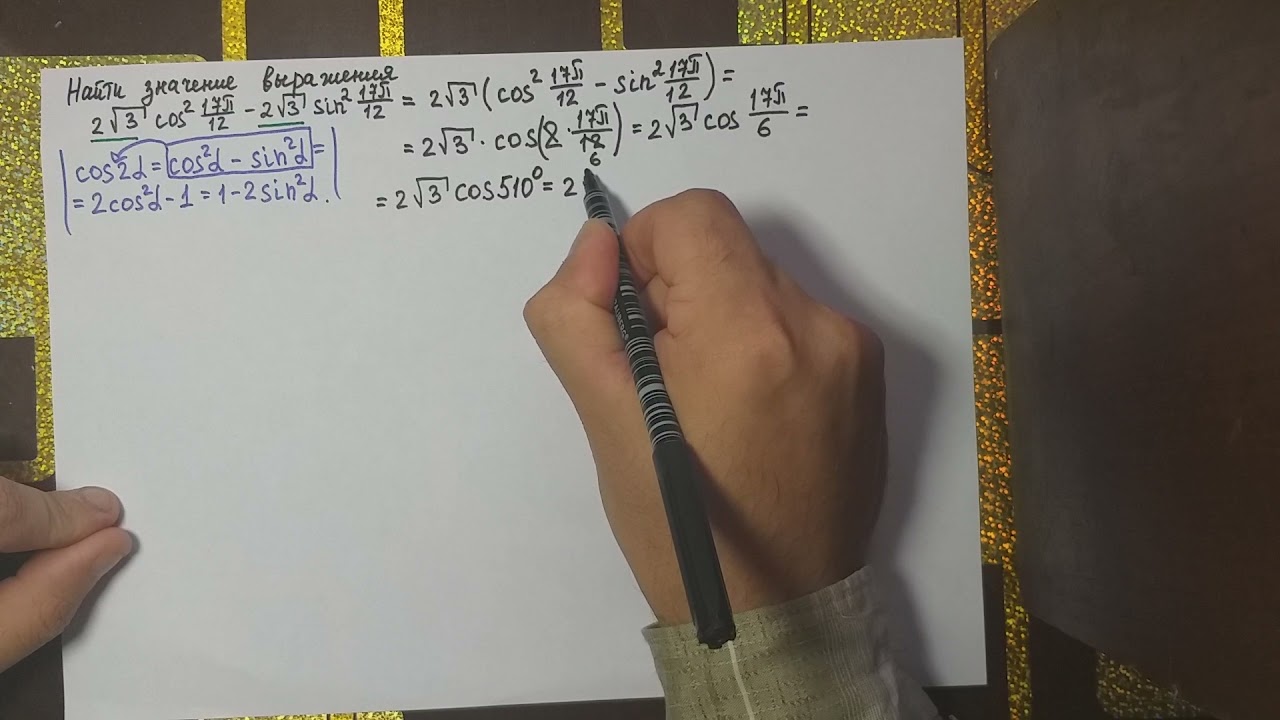 Найти значение выражения
2√3 cos² 17π/12 - 2√3 sin² 17π/12 = 2√3 (cos² 17π/12 - sin² 17π/12) =
= 2√3 · cos(2 · 17π/12) = 2√3 cos 17π/6 =
6
cos2α = cos²α - sin²α =
= 2cos²α - 1 = 1 - 2sin²α.
= 2√3 cos510° = 2